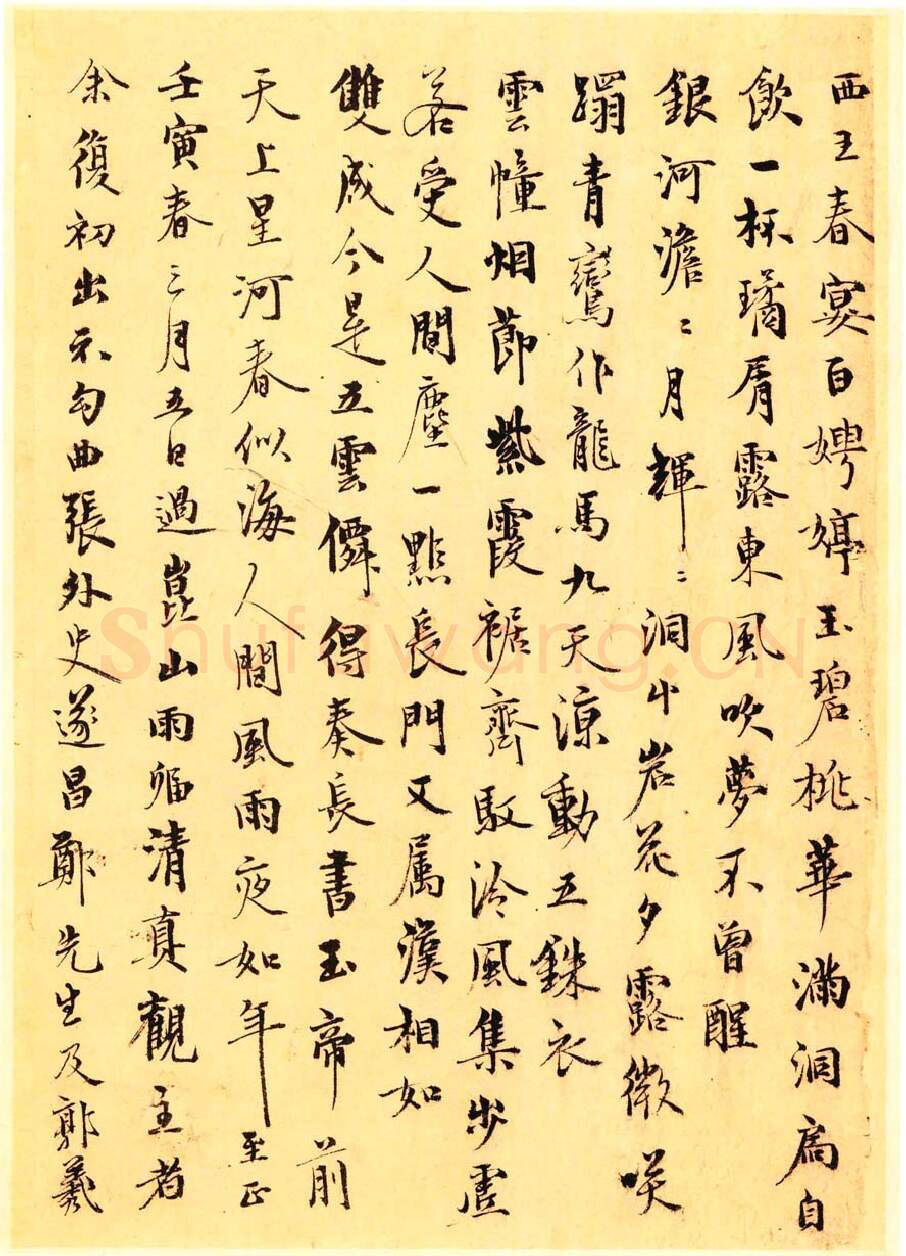 西王春宴百娉婷玉碧桃華滿洞扃自
飲一杯璚屑露東風吹夢不曾醒
銀河澹〻月輝〻洞岩花夕露微咲
躡青鸞作龍馬九天涼動五銖衣
雲幢烟節紫霞裾齊馭泠風集步虛
若受人間塵一點長門又属漢相如
雙成今是五雲僊得奏長書玉帝前
天上星河春似海人間風雨夜如年至正
壬寅春三月五日過崑山雨宿清真觀主者
余復初出示勾曲張外史遂昌鄭先生及郭羲
shufawang.CN